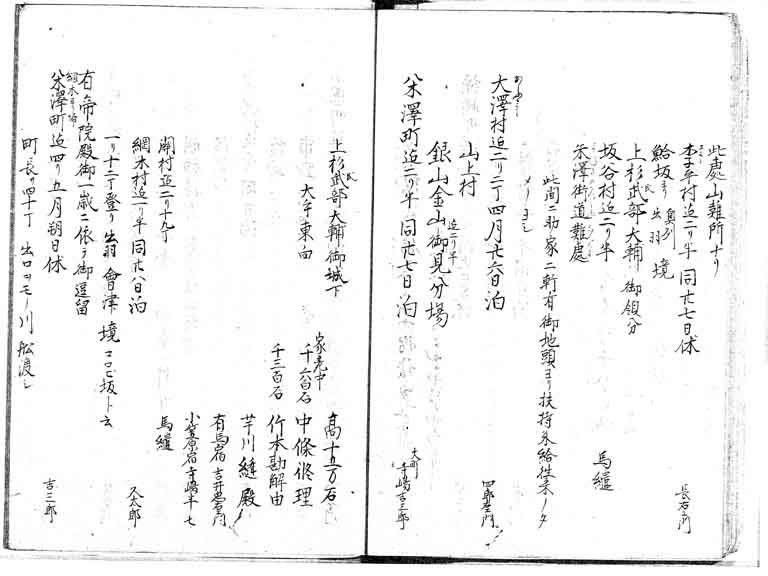 此處山難所ナリ
李平村迄二リ半 同廿七日休 長右衛門
鮐坂ヨリ 奥州 出羽 境
上杉武部大輔御領分
坂谷村迄二リ半 馬繼
米澤街道難處
此間ニ助家二軒有御地頭ヨリ扶持米給往来ノタ
メトヨシ
大澤村迄二リ二丁四月廿六日泊 四郎左衛門
山上村
銀山金山御見分場 迄二リ半
米澤町迄二リ半 同廿七日泊 大町 寺嶋吉三郎
上杉武部大輔御城下 高十五万石
大手東向 家老中 千六百石 中條修理
千三百石 竹本勘解由
芋川縫殿
有馬宿 吉井忠右衛門
小笠原宿 寺嶋半七
関村迄二リ十九丁 馬繼
綱木村迄二リ半 同廿八日泊 又太郎
一リ十二丁登リ出羽會津境 コロビ坂ト云
右帝院殿御一歳ニ依テ御逗留
綱木ヨリ
米澤町迄四リ五月朔日休 吉三郎
町長サ四十丁 出口ヨモノ川船渡シ